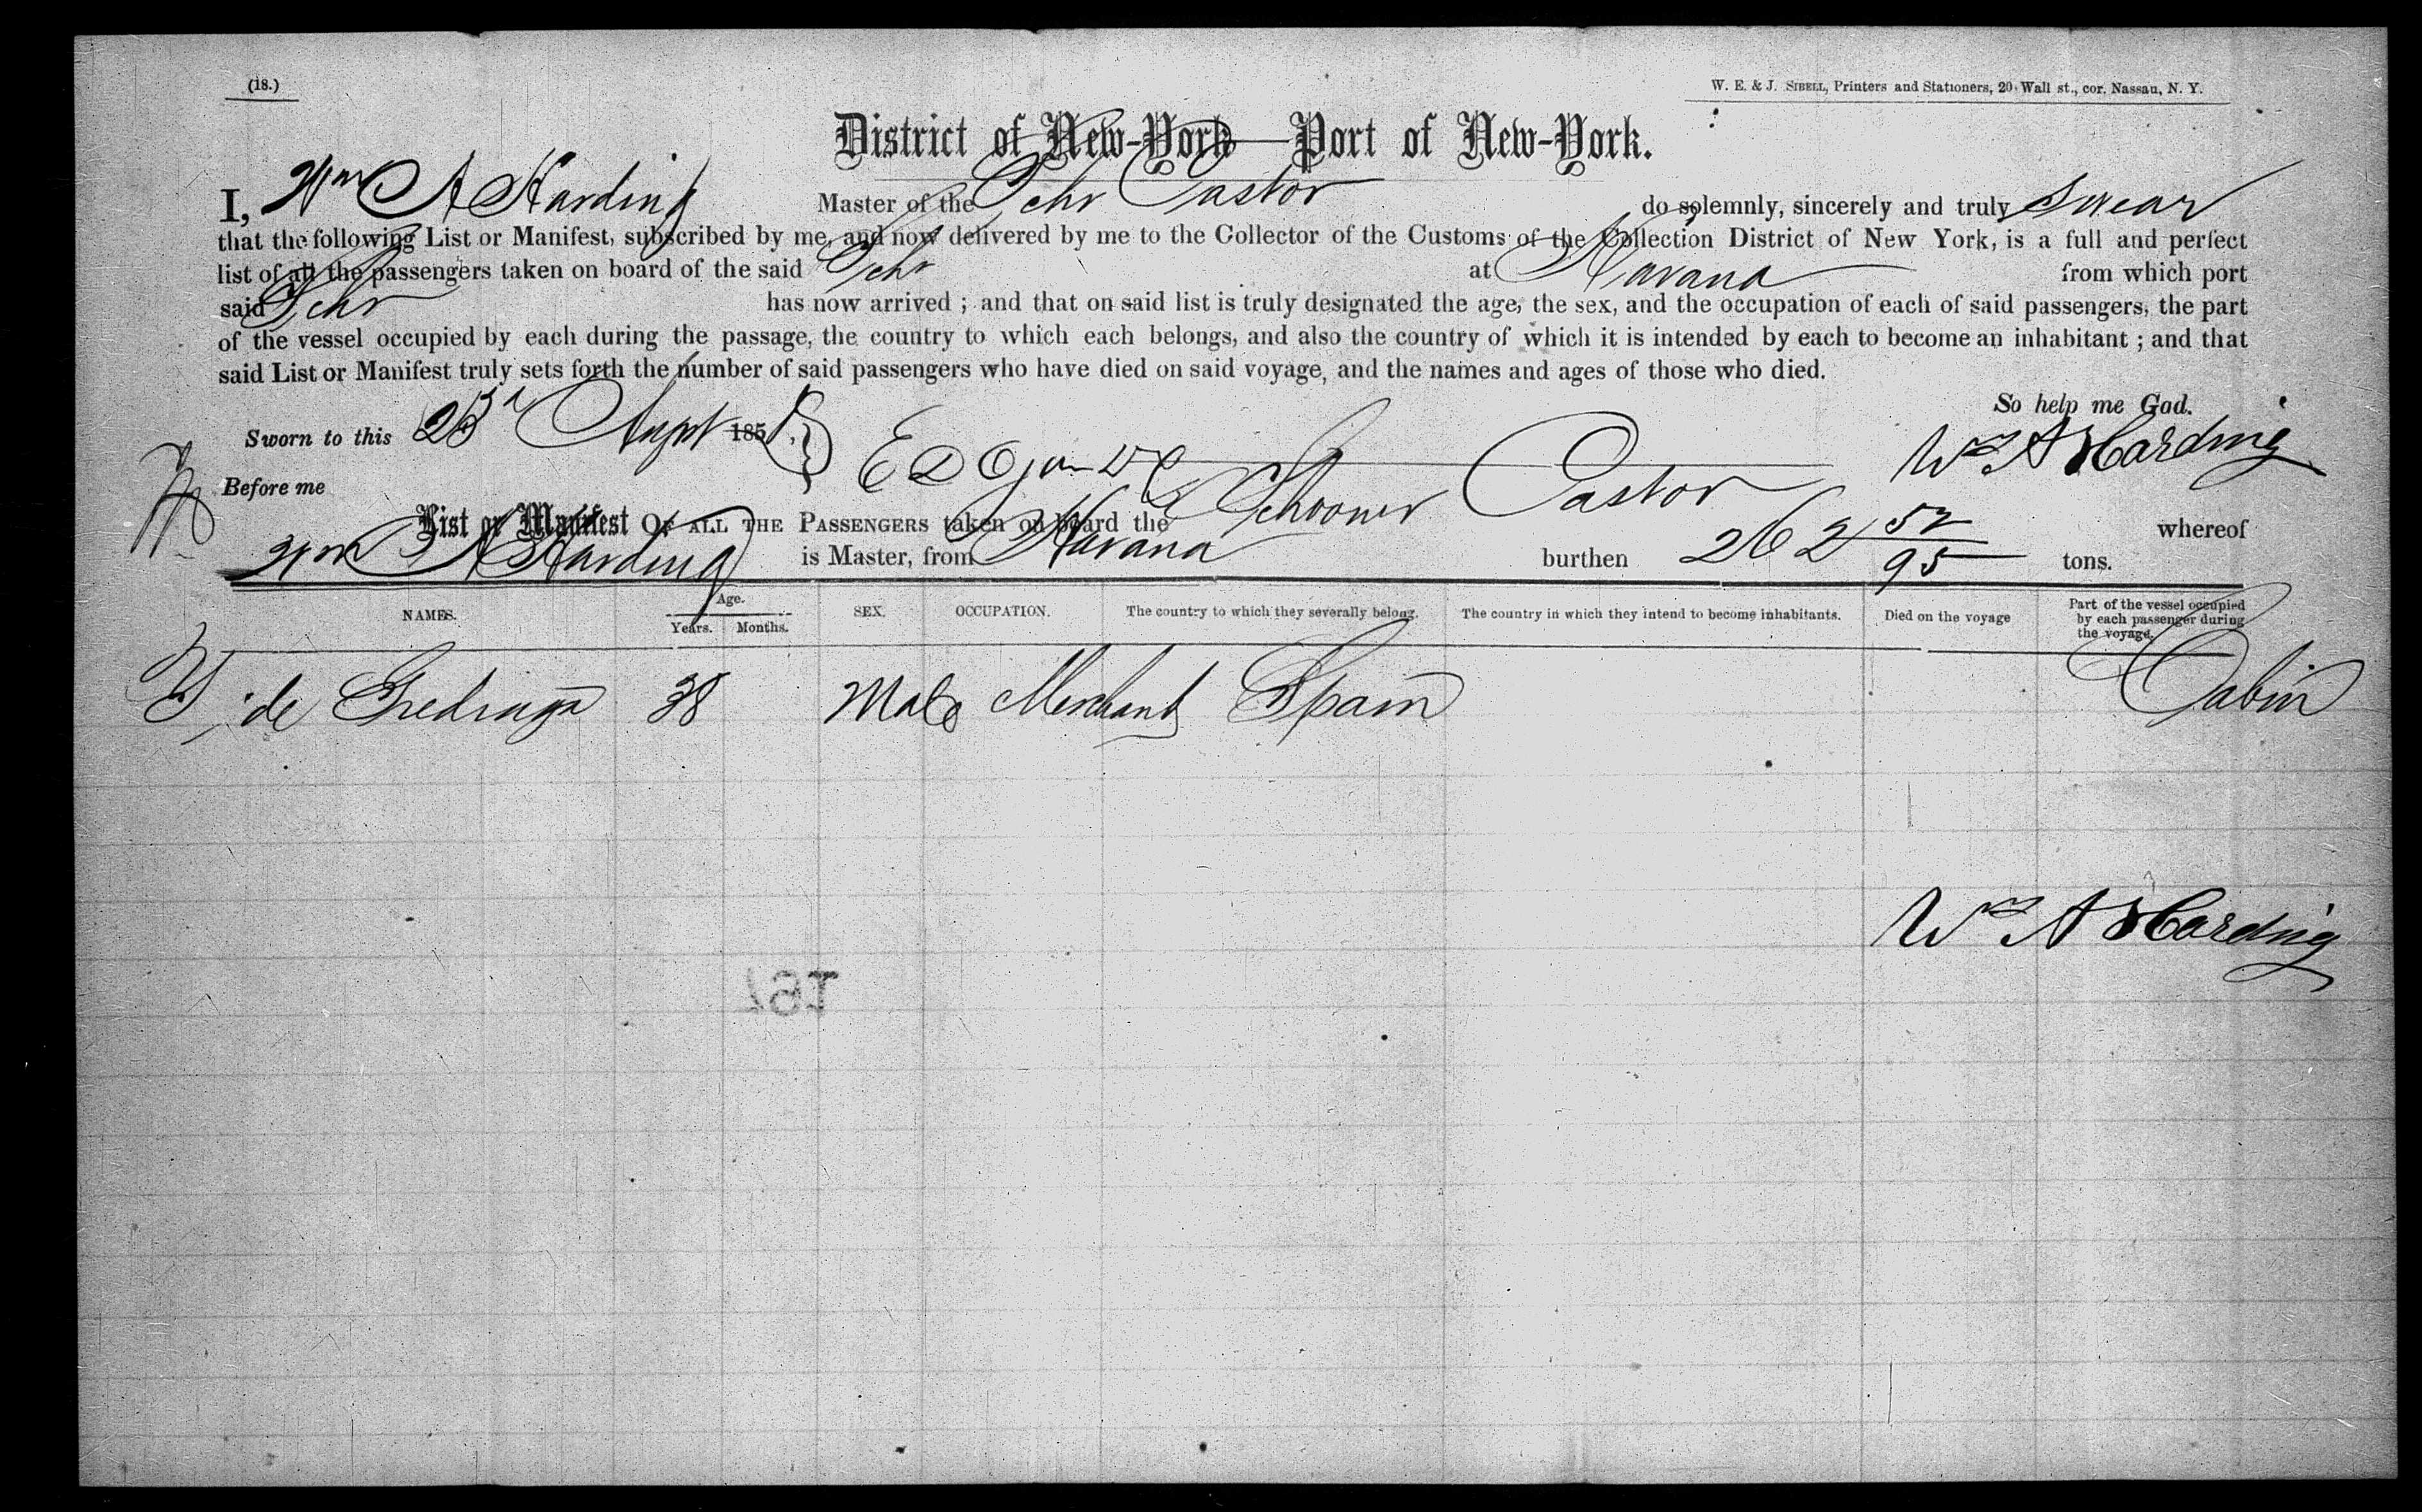 (18.)
W. E. & J. SIBELL, Printers and Stationers, 20 Wall st., cor. Nassau, N. Y.
District of New-York—Port of New-York.
I, Wm A Harding Master of the Schr Castor do solemnly, sincerely and truly Swear
that the following List or Manifest, subscribed by me, and now delivered by me to the Collector of the Customs of the Collection District of New York, is a full and perfect
list of all the passengers taken on board of the said Schr at Havana from which port
said Schr has now arrived ; and that on said list is truly designated the age, the sex, and the occupation of each of said passengers, the part
of the vessel occupied by each during the passage, the country to which each belongs, and also the country of which it is intended by each to become an inhabitant ; and that
said List or Manifest truly sets forth the number of said passengers who have died on said voyage, and the names and ages of those who died.
So help me God.
Sworn to this 23d 185
Wm A Harding
Before me
List or Manifest OF ALL THE PASSENGERS taken on board the Schooner Castor whereof
Wm A Harding is Master, from Havana burthen 262 52/95 tons.
NAMES. Age. Years. Months. SEX. OCCUPATION. The country to which they severally belong. The country in which they intend to become inhabitants. Died on the voyage Part of the vessel occupied by each passenger during the voyage.
de 38 Male Merchant Spain Cabin
Wm A Harding
167